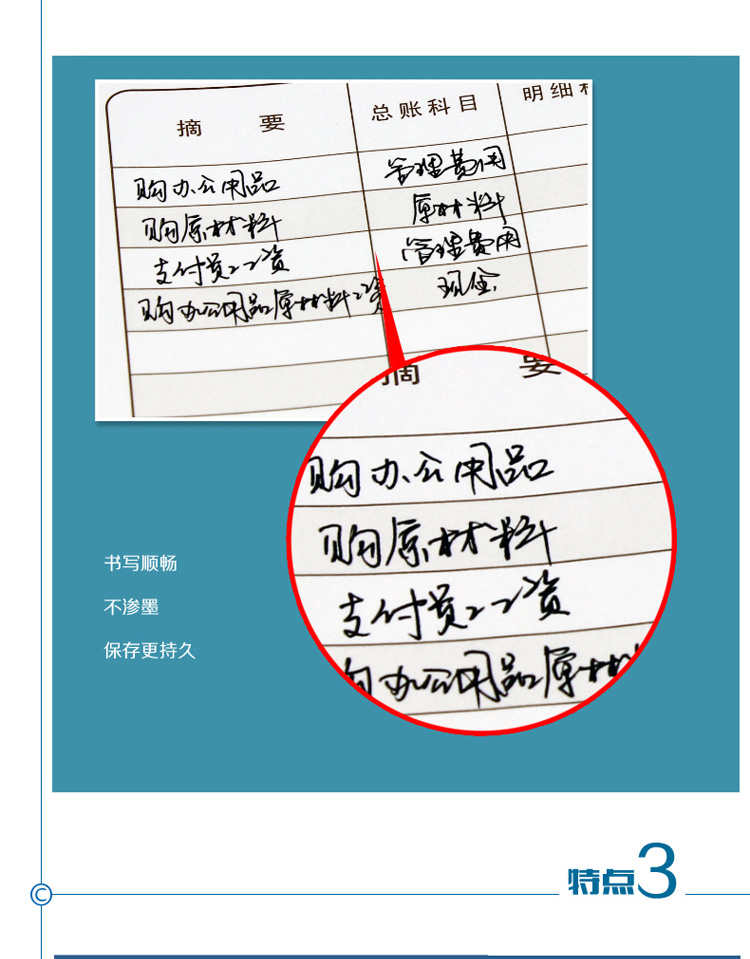 摘 要 总账科目 明细
购办公用品 管理费用
购原材料 原材料
支付员工工资 管理费用
购办公用品原材料工资 现金
摘 要
购办公用品
购原材料
支付员工工资
购办公用品原材
书写顺畅
不渗墨
保存更持久
特点3
C